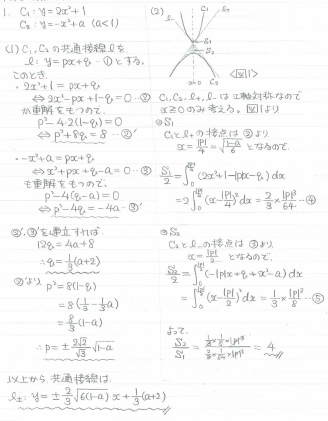 1. C₁ : y = 2x² + 1
C₂ : y = -x² + a (a<1)
(1) C₁, C₂ の共通接線 l を
l : y = px + q …① とする。
このとき、
・2x² + 1 = px + q
⇔ 2x² - px + 1 - q = 0 …②
が重解をもつので、
p² - 4・2(1-q) = 0
⇔ p² + 8q = 8 …②'
・-x² + a = px + q
⇔ x² + px + q - a = 0 …③
も重解をもつので、
p² - 4(q-a) = 0
⇔ p² - 4q = -4a …③'
②', ③' を連立すれば
12q = 4a + 8
∴ q = 1/3(a+2)
②' より
p² = 8(1-q)
= 8(1/3 - 1/3 a)
= 8/3(1-a)
∴ p = ± 2√2/√3 √1-a
以上から 共通接線は、
l± : y = ± 2/3 √6(1-a) x + 1/3(a+2)
(2)
l₋ C₁ l₊
S₁
S₂
C₂
x=0
<図1>
C₁, C₂, l₊, l₋ は y軸対称なので
x≧0 のみ考える。図1より
◎S₁
C₁と l₊ の接点は ②より
x = |p|/4 = √(1-a)/6 となるので、
S₁/2 = ∫₀^{|p|/4} (2x² + 1 - |p|x - q) dx
= 2∫₀^{|p|/4} (x - |p|/4)² dx = 2/3 × |p|³/64 …④
◎S₂
C₂と l₋ の接点は ③より
x = |p|/2 となるので、
S₂/2 = ∫₀^{|p|/2} (-|p|x + q + x² - a) dx
= ∫₀^{|p|/2} (x - |p|/2)² dx = 1/3 × |p|³/8 …⑤
よって、
S₂/S₁ = (1/3 × 1/8 × |p|³)/(2/3 × 1/64 × |p|³) = 4